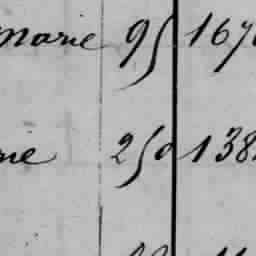 marie 95 167
ne 250 138